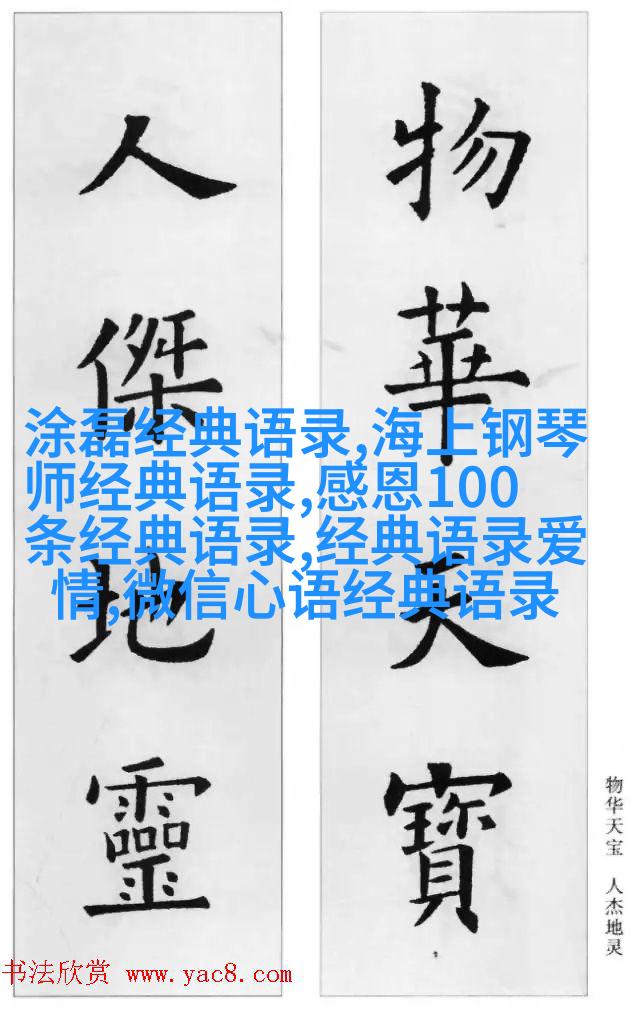 物華天寶
人傑地靈
涂磊经典语录,海上钢琴
师经典语录,感恩100
条经典语录,经典语录爱
情,微信心语经典语录
物华天宝 人杰地灵
书法欣赏 www.yac8.com